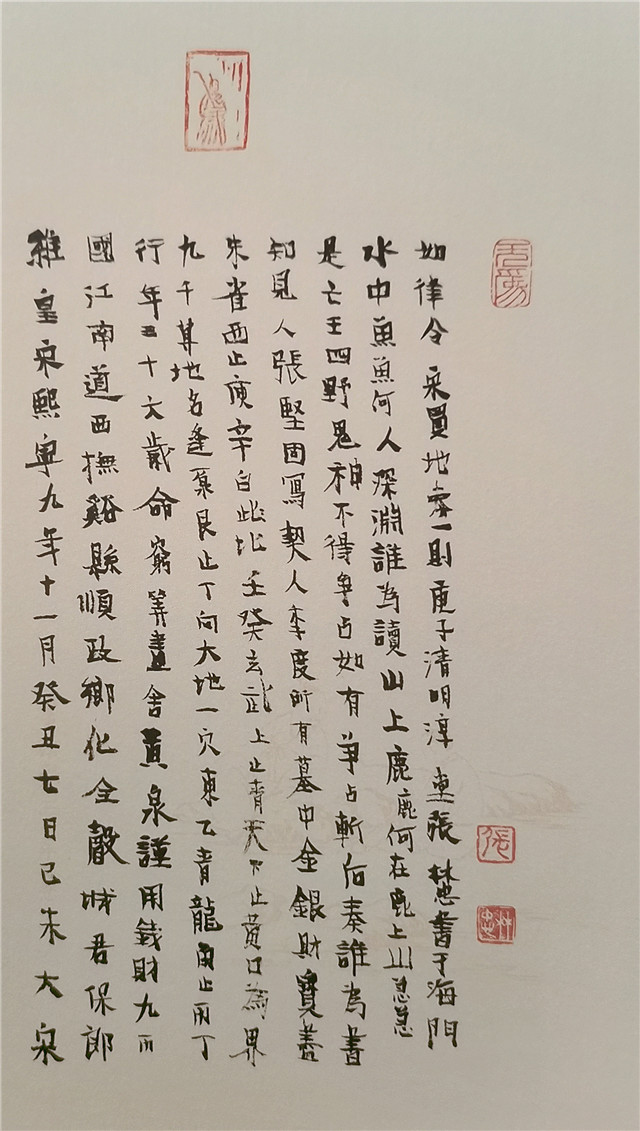 維皇宋熙寧九年十一月癸丑七日己未大宋
國江南道西撫谿縣順政鄉化全城君保郎
行年五十六歲命窮筭盡舍黃泉謹用錢財九
九千其地名逢艮止丁向大地一穴東乙青龍南止丙丁
朱雀西止庚辛白此北壬癸玄武上止青天下止黃口為界
知見人張堅固寫契人李度所有墓中金銀財寶蓋
是亡王四野鬼神不得爭占如有爭占斬后奏誰為書
水中魚魚何人深淵誰為讀山上鹿鹿何在鹿上山急急
如律令 宋買地券一則庚子清明淳 張林忠書于海門
張